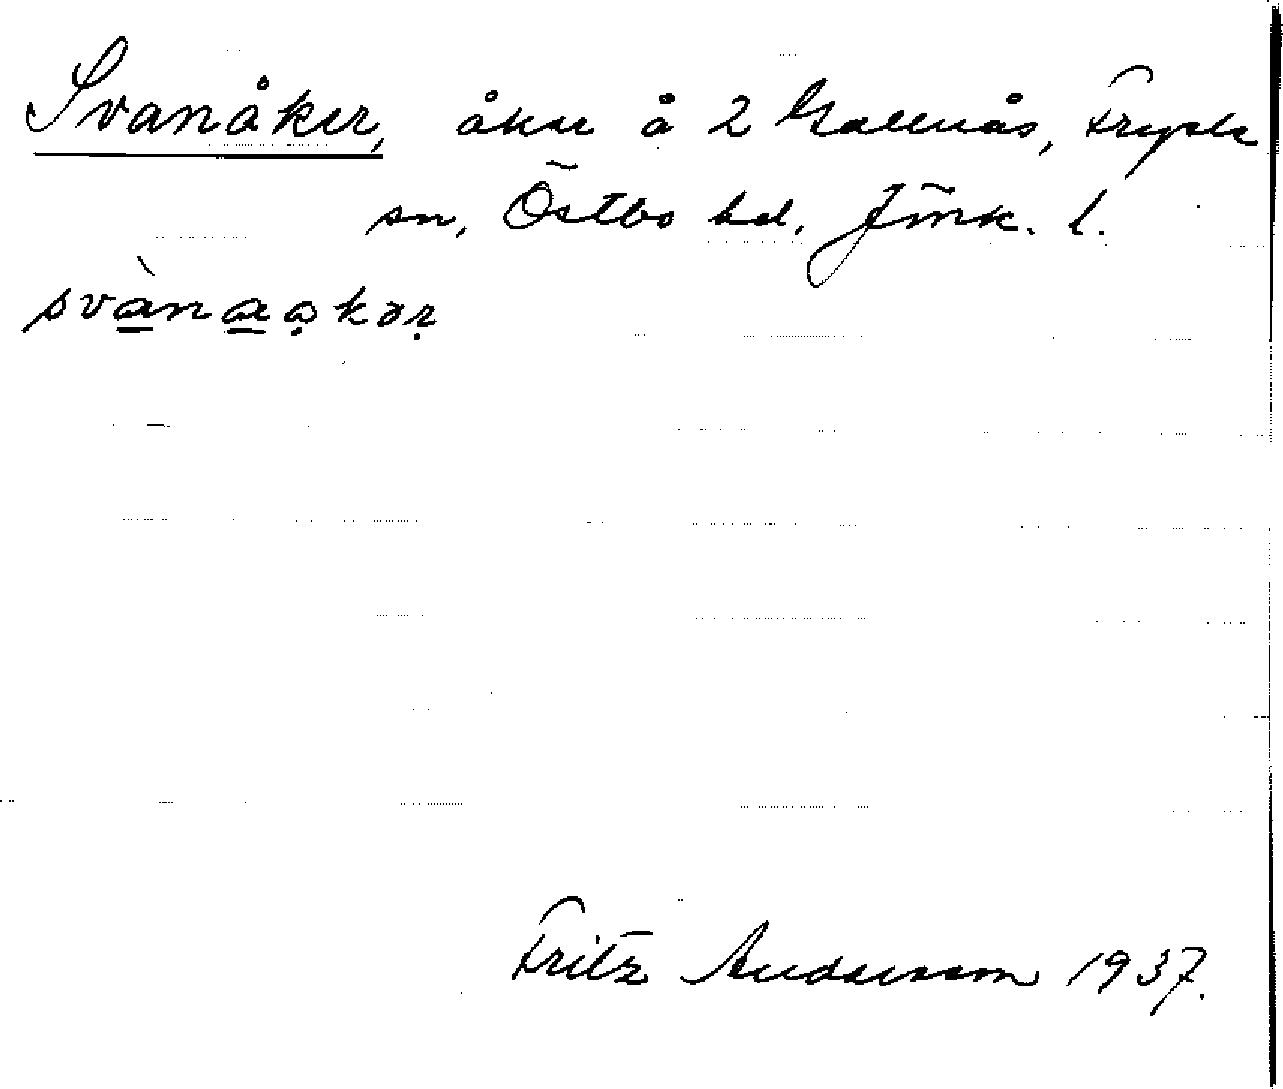 Svanåker, åker å 2 Gallnås, Fryele
sn, Östbo hd, Jönk. l.
svànaa̤kər
Fritz Andersson 1937.